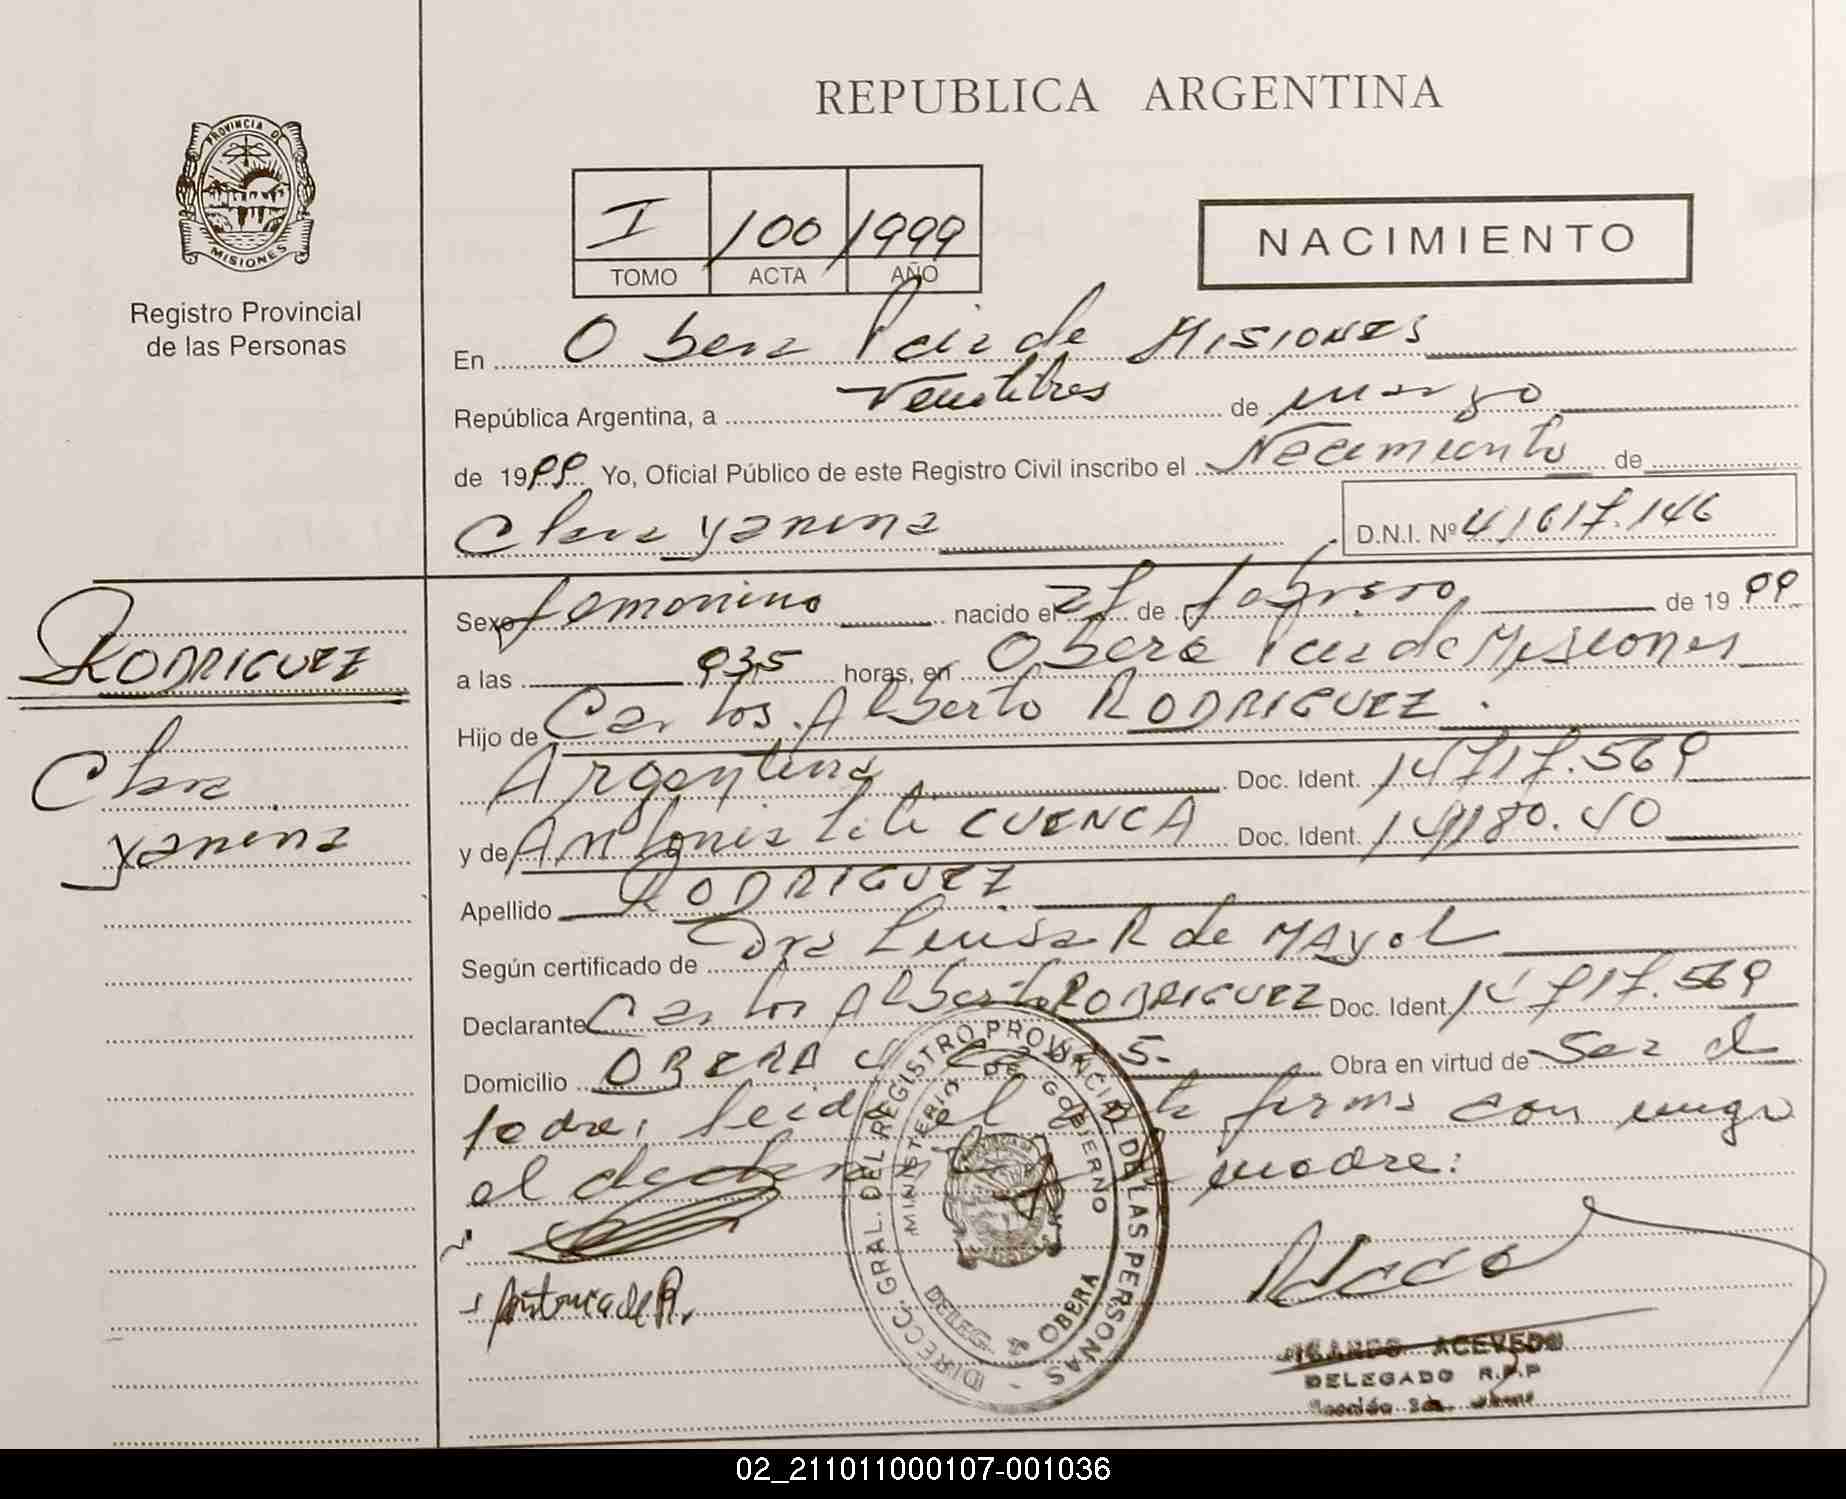 REPUBLICA ARGENTINA
PROVINCIA DE
MISIONES
Registro Provincial
de las Personas
I /100 /1999
TOMO ACTA AÑO
NACIMIENTO
En Obera Pcia de MISIONES
República Argentina, a Veintitres de marzo
de 1999 Yo, Oficial Público de este Registro Civil inscribo el Nacimiento de
Clara Yanina D.N.I. Nº 41617.146
RODRIGUEZ
Clara
Yanina
Sexo femenino nacido el de febrero de 1999
a las 935 horas, en Obera Pcia de Misiones
Hijo de Carlos Alberto RODRIGUEZ.
Argentina Doc. Ident. 569
y de Antonia CUENCA Doc. Ident.
Apellido RODRIGUEZ
Según certificado de Dra Luisa R de MAYOL
Declarante Carlos Alberto RODRIGUEZ Doc. Ident. 569
Domicilio OBERA 5- Obra en virtud de Ser el
Padre, leida el Acta firma con migo
el declarante madre:
Antonia de R.
DIRECC. GRAL. DEL REGISTRO PROVINCIAL DE LAS PERSONAS
MINISTERIO DE GOBIERNO
DELEG. OBERA
ACEVEDO
DELEGADO R.P.P
02_211011000107-001036